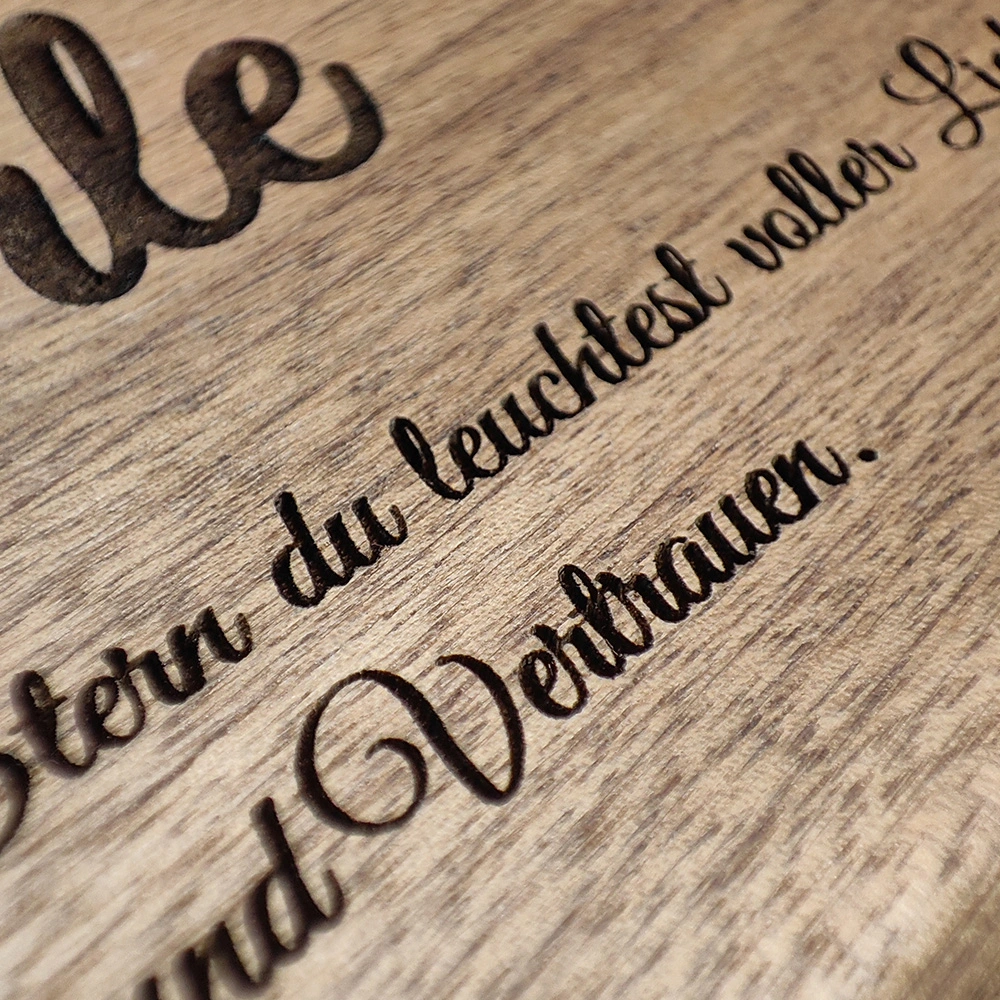 le
Stern du leuchtest voller
und Vertrauen.